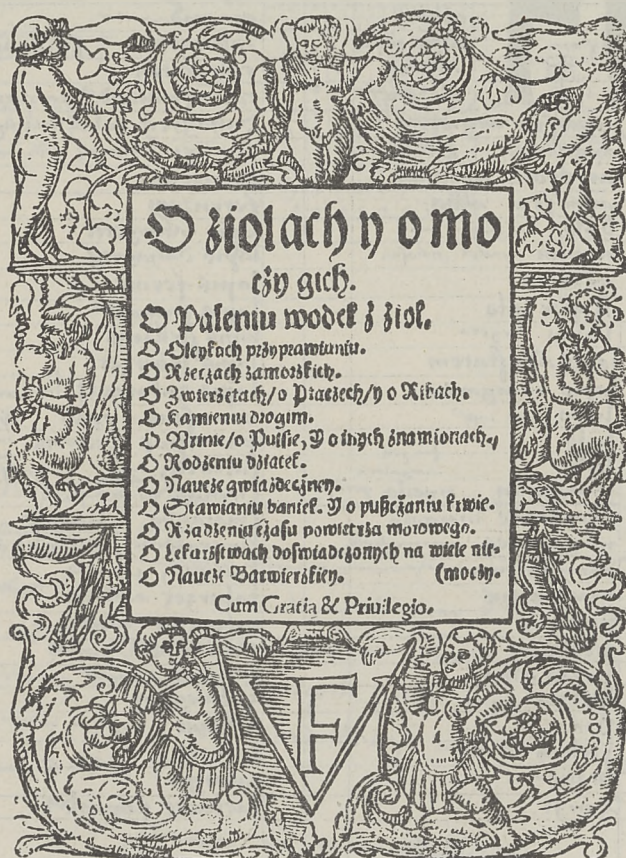 O ziolach y o mo
czy gich.
O Paleniu wodek z ziol.
O Oleykach przyprawianiu.
O Rzeczach zamorskich.
O Zwierzetach/o Ptaczech/y o Ribach.
O Kamieniu drogim.
O Vrinie/o Pulsie, Y o inych znamionach.,
O Rodzeniu dziatek.
O Naucze gwiazdeczney.
O Stawianiu baniek. Y o pusczaniu krwie.
O Rządzeniu czasu powietrza morowego.
O Lekarzstwach doswiadczonych na wiele nie-
O Naucze Barwierzkiey. (moczy.
Cum Gratia & Priuilegio.
F